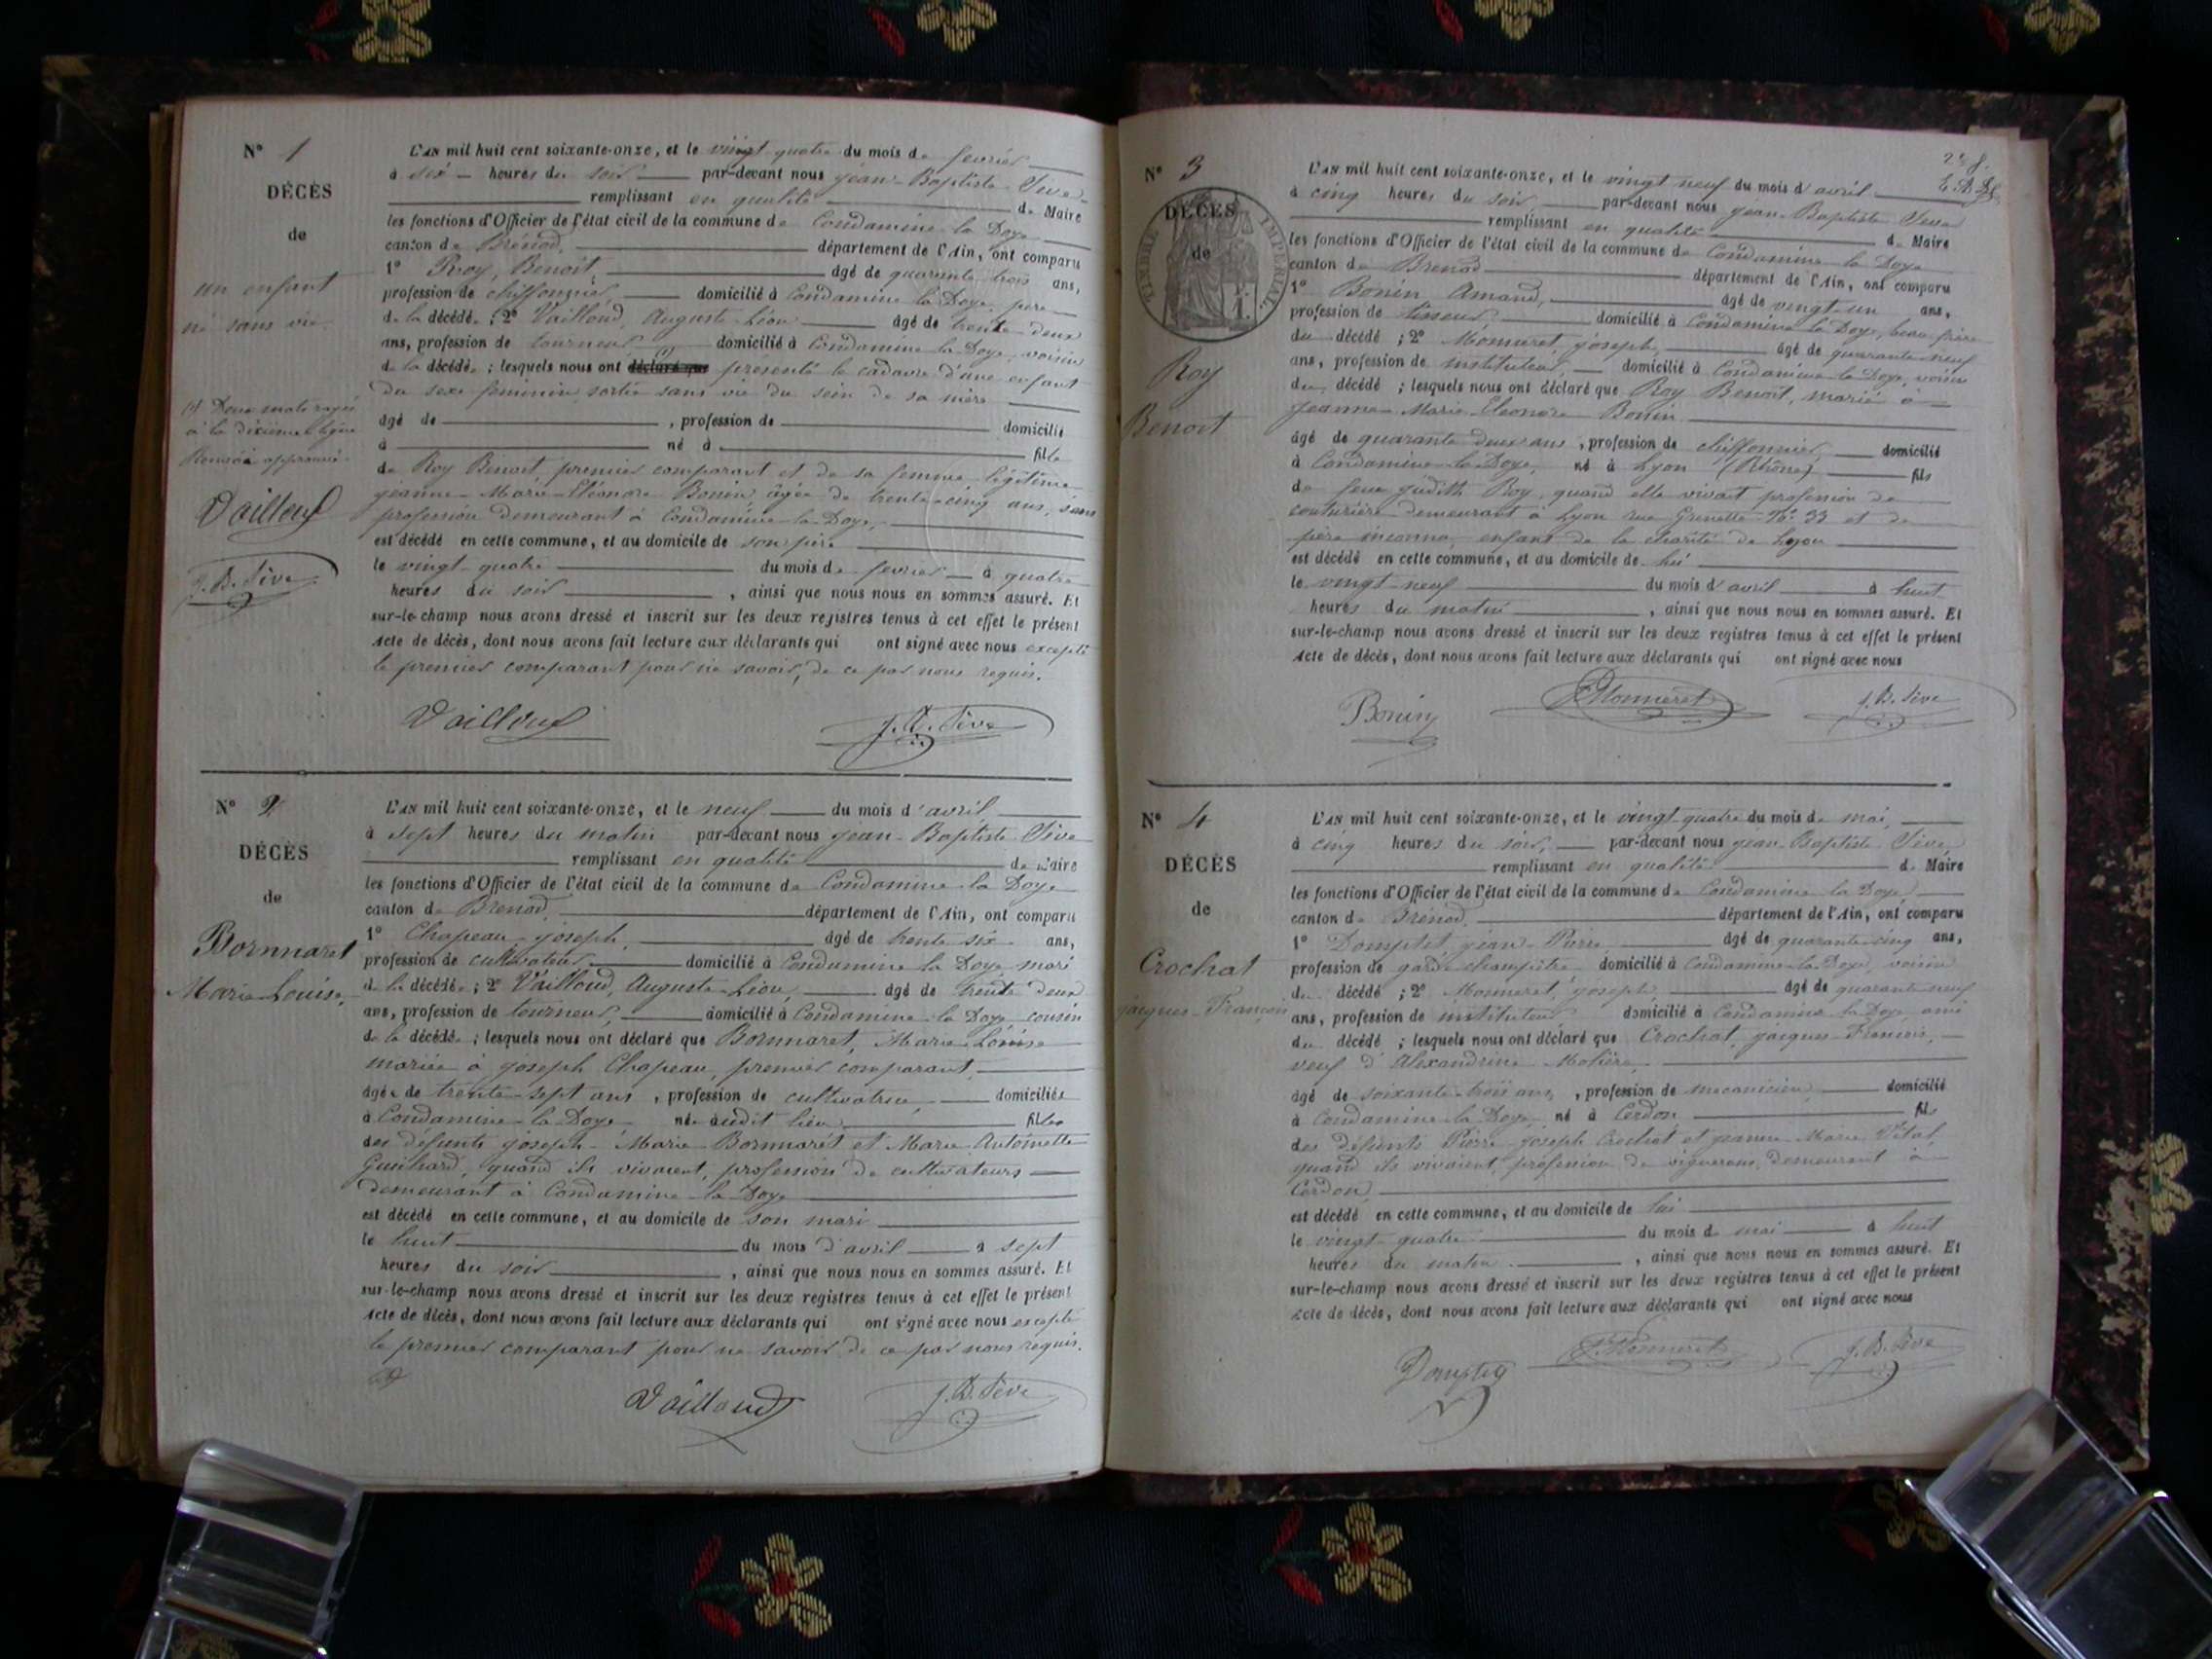 N° 1
DÉCÈS
de
un enfant
né sans vie
(1) Deux mots rayés
à la dixième ligne
Renvoi approuvé
Vailloud
J. B. Sève
L'AN mil huit cent soixante-onze, et le vingt quatre du mois de février
à six heures du soir par-devant nous jean-Baptiste Sève
remplissant en qualité de Maire
les fonctions d'Officier de l'état civil de la commune de Condamine la Doye
canton de Brénod, département de l'Ain, ont comparu
1° Roy, Benoit, âgé de quarante trois ans,
profession de chiffonnier, domicilié à Condamine la Doye père
de la décédée ; 2° Vailloud, Auguste Léon âgé de trente deux
ans, profession de tourneur domicilié à Condamine la Doye, voisin
de la décédée ; lesquels nous ont déclaré que (1) présenté le cadavre d'une enfant
du sexe féminin sortie sans vie du sein de sa mère
âgé de , profession de domicilié
à né à fille
de Roy Benoit premier comparant et de sa femme légitime
jeanne-Marie-Eléonore Bonin âgée de trente-cinq ans, sans
profession demeurant à Condamine-la-Doye,
est décédé en cette commune, et au domicile de son père
le vingt-quatre du mois de février à quatre
heures du soir , ainsi que nous nous en sommes assuré. Et
sur-le-champ nous avons dressé et inscrit sur les deux registres tenus à cet effet le présent
acte de décès, dont nous avons fait lecture aux déclarants qui ont signé avec nous excepté
le premier comparant pour ne savoir, de ce par nous requis.
Vailloud J. B. Sève
N° 2
DÉCÈS
de
Bornnaret
Marie Louise,
L'AN mil huit cent soixante-onze, et le neuf du mois d'avril
à sept heures du matin par-devant nous jean-Baptiste Sève
remplissant en qualité de Maire
les fonctions d'Officier de l'état civil de la commune de Condamine la Doye
canton de Brenod, département de l'Ain, ont comparu
1° Chapeau joseph, âgé de trente six ans,
profession de cultivateur domicilié à Condamine la Doye mari
de la décédée ; 2° Vailloud, Auguste Léon, âgé de trente deux
ans, profession de tourneur, domicilié à Condamine la Doye cousin
de la décédée ; lesquels nous ont déclaré que Bornnaret, Marie Louise
mariée à joseph Chapeau, premier comparant,
âgée de trente-sept ans , profession de cultivatrice domiciliée
à Condamine la Doye née audit lieu fille
des défunts joseph-Marie Bornnaret et Marie Antoinette
Guichard, quand ils vivaient, profession de cultivateurs
demeurant à Condamine la Doye
est décédé en cette commune, et au domicile de son mari
le huit du mois d'avril à sept
heures du soir , ainsi que nous nous en sommes assuré. Et
sur-le-champ nous avons dressé et inscrit sur les deux registres tenus à cet effet le présent
acte de décès, dont nous avons fait lecture aux déclarants qui ont signé avec nous excepté
le premier comparant pour ne savoir de ce par nous requis.
Vailloud J. B. Sève
N° 3
DÉCÈS
de
TIMBRE IMPERIAL
Roy
Benoit
L'AN mil huit cent soixante-onze, et le vingt neuf du mois d'avril
à cinq heures du soir par-devant nous jean-Baptiste Sève
remplissant en qualité de Maire
les fonctions d'Officier de l'état civil de la commune de Condamine la Doye
canton de Brenod département de l'Ain, ont comparu
1° Bonin Amand, âgé de vingt-un ans,
profession de tisseur, domicilié à Condamine la Doye, beau-frère
du décédé ; 2° Monneret joseph, âgé de quarante neuf
ans, profession de instituteur, domicilié à Condamine-la-Doye, voisin
du décédé ; lesquels nous ont déclaré que Roy Benoit, marié à
jeanne-Marie-Eleonore Bonin
âgé de quarante deux ans , profession de chiffonnier, domicilié
à Condamine-la-Doye, né à Lyon (Rhône) fils
de feue judith Roy, quand elle vivait profession de
couturière demeurant à Lyon rue Grenette N° 33 et de
père inconnu, enfant de la charité de Lyon
est décédé en cette commune, et au domicile de lui
le vingt-neuf du mois d'avril à huit
heures du matin , ainsi que nous nous en sommes assuré. Et
sur-le-champ nous avons dressé et inscrit sur les deux registres tenus à cet effet le présent
acte de décès, dont nous avons fait lecture aux déclarants qui ont signé avec nous
Bonin Monneret J. B. Sève
N° 4
DÉCÈS
de
Crochat
jacques-François
L'AN mil huit cent soixante-onze, et le vingt quatre du mois de mai,
à cinq heures du soir, par-devant nous jean-Baptiste Sève,
remplissant en qualité de Maire
les fonctions d'Officier de l'état civil de la commune de Condamine la Doye,
canton de Brénod, département de l'Ain, ont comparu
1° Domptet, jean-Pierre âgé de quarante-cinq ans,
profession de garde champêtre domicilié à Condamine-la-Doye, voisin
du décédé ; 2° Monneret, joseph, âgé de quarante neuf
ans, profession de instituteur domicilié à Condamine la Doye ami
du décédé ; lesquels nous ont déclaré que Crochat, jacques-François,
veuf d'Alexandrine Molière,
âgé de soixante-trois ans, , profession de mecanicien, domicilié
à Condamine la Doye, né à Cerdon, fils
des défunts Pierre-joseph Crochat et jeanne Marie Vital,
quand ils vivaient, profession de vignerons, demeurant à
Cerdon,
est décédé en cette commune, et au domicile de lui
le vingt-quatre du mois de mai à huit
heures du matin , ainsi que nous nous en sommes assuré. Et
sur-le-champ nous avons dressé et inscrit sur les deux registres tenus à cet effet le présent
acte de décès, dont nous avons fait lecture aux déclarants qui ont signé avec nous
Monneret J. B. Sève